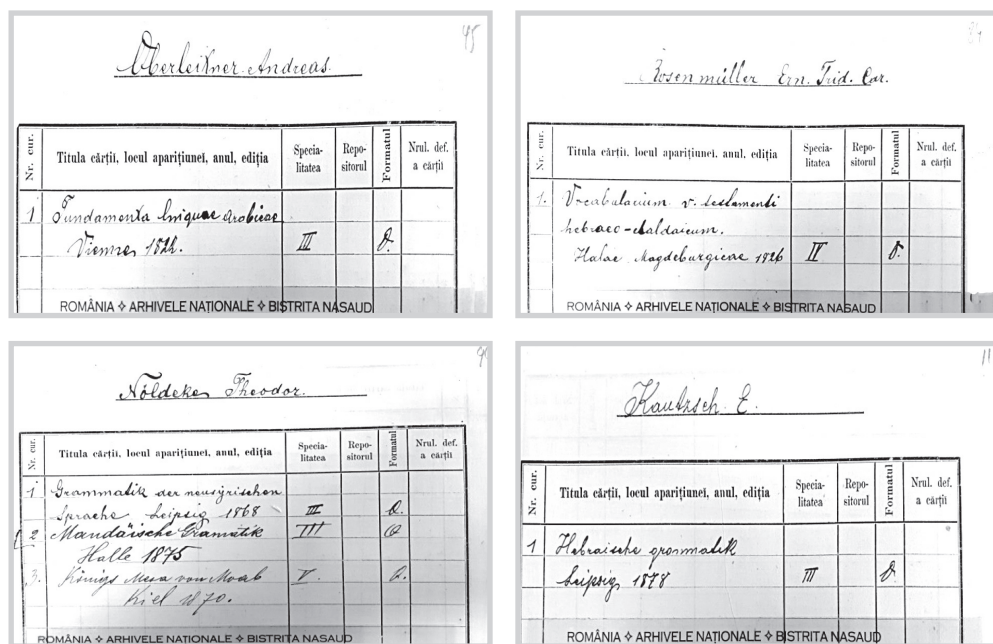 45
Oberleitner Andreas.
Nr. cur.
Titula cărții, locul aparițiunei, anul, ediția
Specia-
litatea
Repo-
sitorul
Formatul
Nrul. def.
a cărții
1 Fundamenta linguae arabicae
Viennae 1822. III O.
ROMÂNIA ❖ ARHIVELE NAȚIONALE ❖ BISTRITA NASAUD
Rosenmüller Ern. Frid. Car.
Nr. cur.
Titula cărții, locul aparițiunei, anul, ediția
Specia-
litatea
Repo-
sitorul
Formatul
Nrul. def.
a cărții
1. Vocabularium v. testamenti
hebraeo-chaldaicum.
Halae Magdeburgicae 1826 IV O.
ROMÂNIA ❖ ARHIVELE NAȚIONALE ❖ BISTRITA NASAUD
Nöldeke Theodor.
Nr. cur.
Titula cărții, locul aparițiunei, anul, ediția
Specia-
litatea
Repo-
sitorul
Formatul
Nrul. def.
a cărții
1 Grammatik der neusyrischen
Sprache Leipzig 1868 III O.
2 Mandäische Gramatik III O
Halle 1875
3. Königs Mesa von Moab V. O.
Kiel 1870.
ROMÂNIA ❖ ARHIVELE NAȚIONALE ❖ BISTRITA NASAUD
11
Kautzsch E.
Nr. cur.
Titula cărții, locul aparițiunei, anul, ediția
Specia-
litatea
Repo-
sitorul
Formatul
Nrul. def.
a cărții
1 Hebraische grammatik
Leipzig 1878 III O
ROMÂNIA ❖ ARHIVELE NAȚIONALE ❖ BISTRITA NASAUD